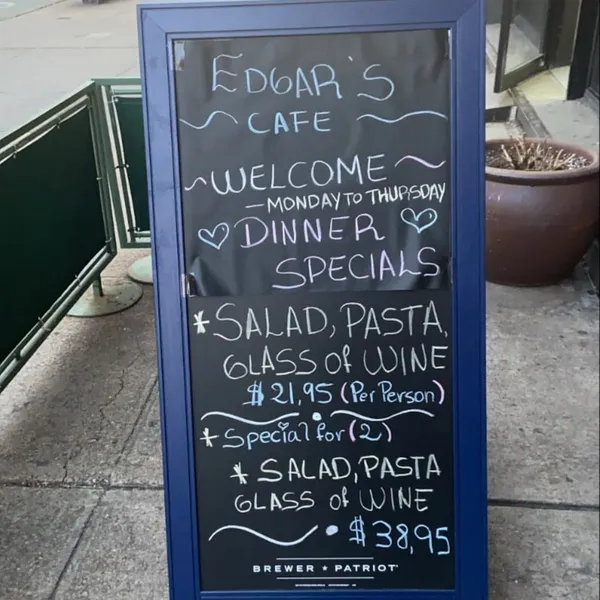 EDGAR'S
CAFE
WELCOME
- MONDAY TO THURSDAY
DINNER
SPECIALS
* SALAD, PASTA,
GLASS of WINE
$21,95 (Per Person)
* Special for (2)
* SALAD, PASTA
GLASS of WINE
• $38,95
BREWER ★ PATRIOT